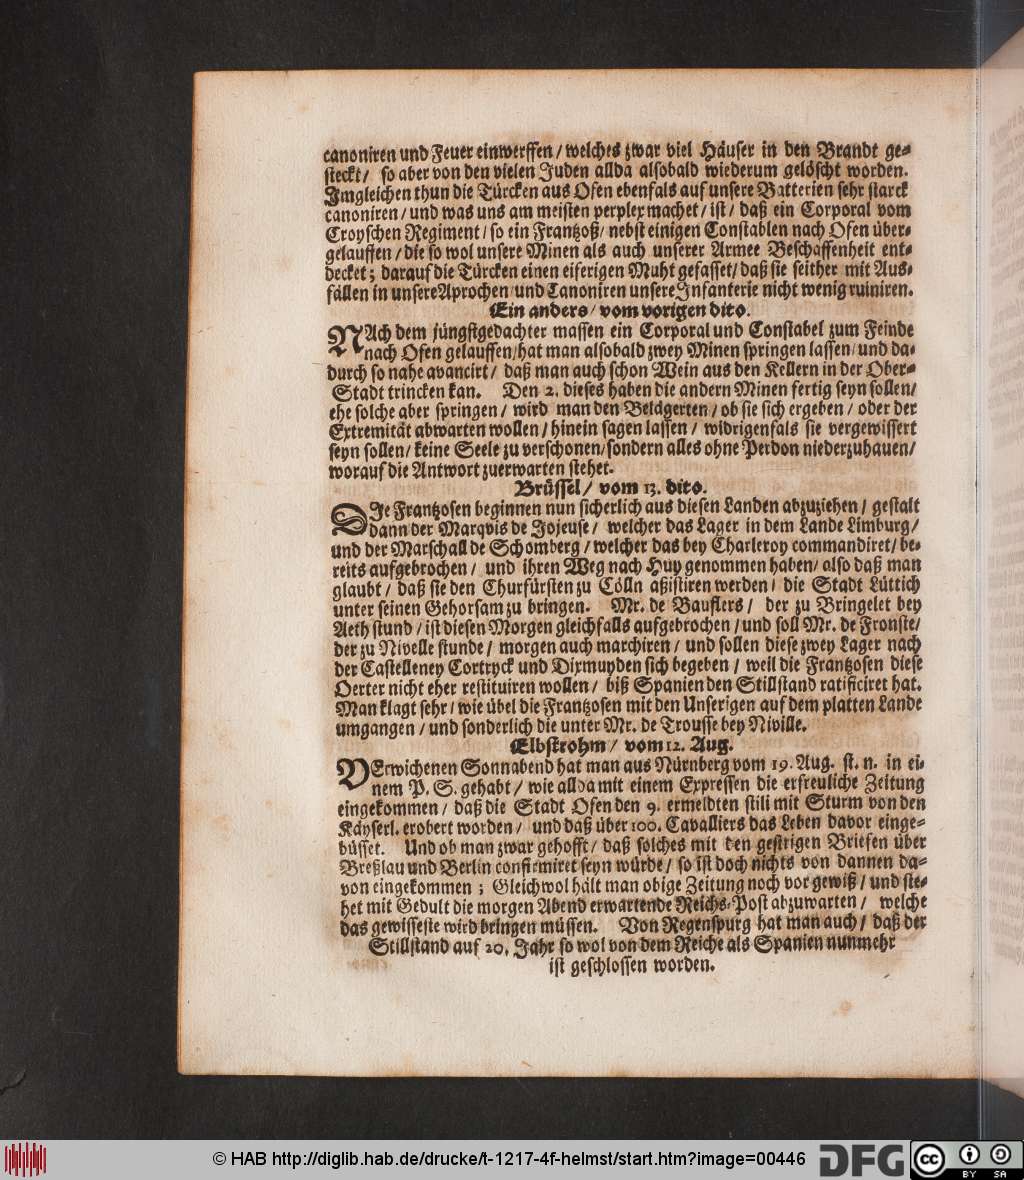 canoniren und Feuer einwerffen / welches zwar viel Häuser in den Brandt ge-
steckt / so aber von den vielen Juden allda alsobald wiederum gelöscht worden.
Imgleichen thun die Türcken aus Ofen ebenfals auf unsere Batterien sehr starck
canoniren / und was uns am meisten perplex machet / ist / daß ein Corporal vom
Croyschen Regiment / so ein Frantzoß / nebst einigen Constablen nach Ofen über-
gelauffen / die so wol unsere Minen als auch unserer Armee Beschaffenheit ent-
decket ; darauf die Türcken einen eiferigen Muht gefasset / daß sie seither mit Aus-
fällen in unsere Aprochen und Canoniren unsere Infanterie nicht wenig ruiniren.
Ein anders / vom vorigen dito.
NAch dem jüngstgedachter massen ein Corporal und Constabel zum Feinde
nach Ofen gelauffen / hat man alsobald zwey Minen springen lassen / und da-
durch so nahe avancirt / daß man auch schon Wein aus den Kellern in der Ober-
Stadt trincken kan. Den 2. dieses haben die andern Minen fertig seyn sollen /
ehe solche aber springen / wird man den Belägerten / ob sie sich ergeben / oder der
Extremität abwarten wollen / hinein sagen lassen / widrigenfals sie vergewissert
seyn sollen / keine Seele zu verschonen / sondern alles ohne Perdon niederzuhauen /
worauf die Antwort zuerwarten stehet.
Brüssel / vom 13. dito.
DIe Frantzosen beginnen nun sicherlich aus diesen Landen abzuziehen / gestalt
dann der Marqvis de Jojeuse / welcher das Lager in dem Lande Limburg /
und der Marschall de Schomberg / welcher das bey Charleroy commandiret / be-
reits aufgebrochen / und ihren Weg nach Huy genommen haben / also daß man
glaubt / daß sie den Churfürsten zu Cölln aßistiren werden / die Stadt Lüttich
unter seinen Gehorsam zu bringen. Mr. de Bauflers / der zu Bringelet bey
Aeth stund / ist diesen Morgen gleichfalls aufgebrochen / und soll Mr. de Fronste /
der zu Nivelle stunde / morgen auch marchiren / und sollen diese zwey Lager nach
der Castelleney Cortryck und Dixmuyden sich begeben / weil die Frantzosen diese
Oerter nicht eher restituiren wollen / biß Spanien den Stillstand ratificiret hat.
Man klagt sehr / wie übel die Frantzosen mit den Unserigen auf dem platten Lande
umgangen / und sonderlich die unter Mr. de Trousse bey Niville.
Elbstrohm / vom 12. Aug.
VErwichenen Sonnabend hat man aus Nürnberg vom 19. Aug. st. n. in ei-
nem P. S. gehabt / wie allda mit einem Expressen die erfreuliche Zeitung
eingekommen / daß die Stadt Ofen den 9. ermeldten stili mit Sturm von den
Käyserl. erobert worden / und daß über 100. Cavalliers das Leben davor einge-
büsset. Und ob man zwar gehofft / daß solches mit den gestrigen Briefen über
Breßlau und Berlin confirmiret seyn würde / so ist doch nichts von dannen da-
von eingekommen ; Gleichwol hält man obige Zeitung noch vor gewiß / und ste-
het mit Gedult die morgen Abend erwartende Reichs-Post abzuwarten / welche
das gewisseste wird bringen müssen. Von Regenspurg hat man auch / daß der
Stillstand auf 20. Jahr so wol von dem Reiche als Spanien nunmehr
ist geschlossen worden.
© HAB http://diglib.hab.de/drucke/t-1217-4f-helmst/start.htm?image=00446
DFG
cc BY SA